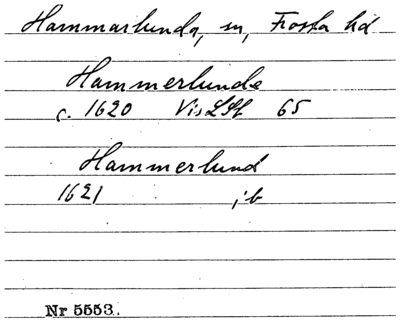 Hammarlunda, sn, Frosta hd
Hammerlunde
c. 1620 VisLSt 65
Hammerlund
1621 ; b
Nr 5553.